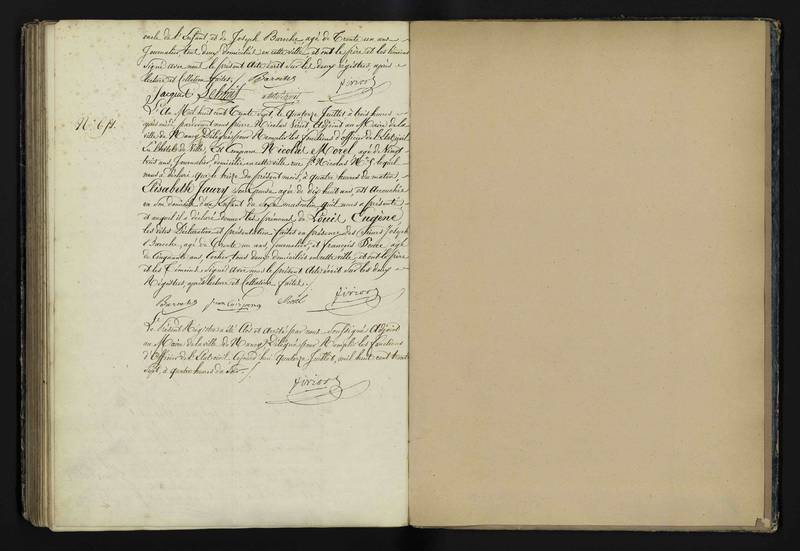 oncle de l'Enfant et de Joseph Baroche, agé de Trente un ans
Journalier, tout deux domiciliés en cette ville, et ont le père et les témoins
Signé avec nous le présent Acte écrit sur les deux registres, après
lecture et Collation faites.
Jacquot
N.°
L'An Mil huit cent trente Sept, le quatorze Juillet à trois heures
après midi pardevant nous Adjoint au Maire de la
ville de Nancy Délégué pour Remplir les fonctions d'officier de l'Etat civil
à l'hôtel de Ville, Est Comparu Nicolas Morel, agé de Vingt
trois ans, Journalier, domicilié en cette ville, rue St Nicolas N.° lequel
nous a déclaré que le treize du présent mois, à quatre heures du matin,
Elisabeth Jaury Son Epouse agée de dix huit ans, est Accouchée
en Son domicile d'un Enfant du Sexe masculin qu'il nous a présenté
et auquel il a déclaré donner les prénoms de Louis Eugène
les dites Déclaration et présentation faites en présence des Sieurs Joseph
Baroche, agé de Trente un ans, Journalier, et françois agé
de Cinquante ans, Cocher, tous deux domiciliés en cette ville, et ont le père
et les témoins Signé avec nous le présent Acte écrit sur les deux
Registres, après lecture et Collation faites.
Le Présent Registre a été Clos et Arrêté par nous Soussigné Adjoint
au Maire de la ville de Nancy Délégué pour Remplir les fonctions
d'Officier de l'Etat civil. Cejourd'hui quatorze Juillet, mil huit cent trente
Sept, à quatre heures du Soir.